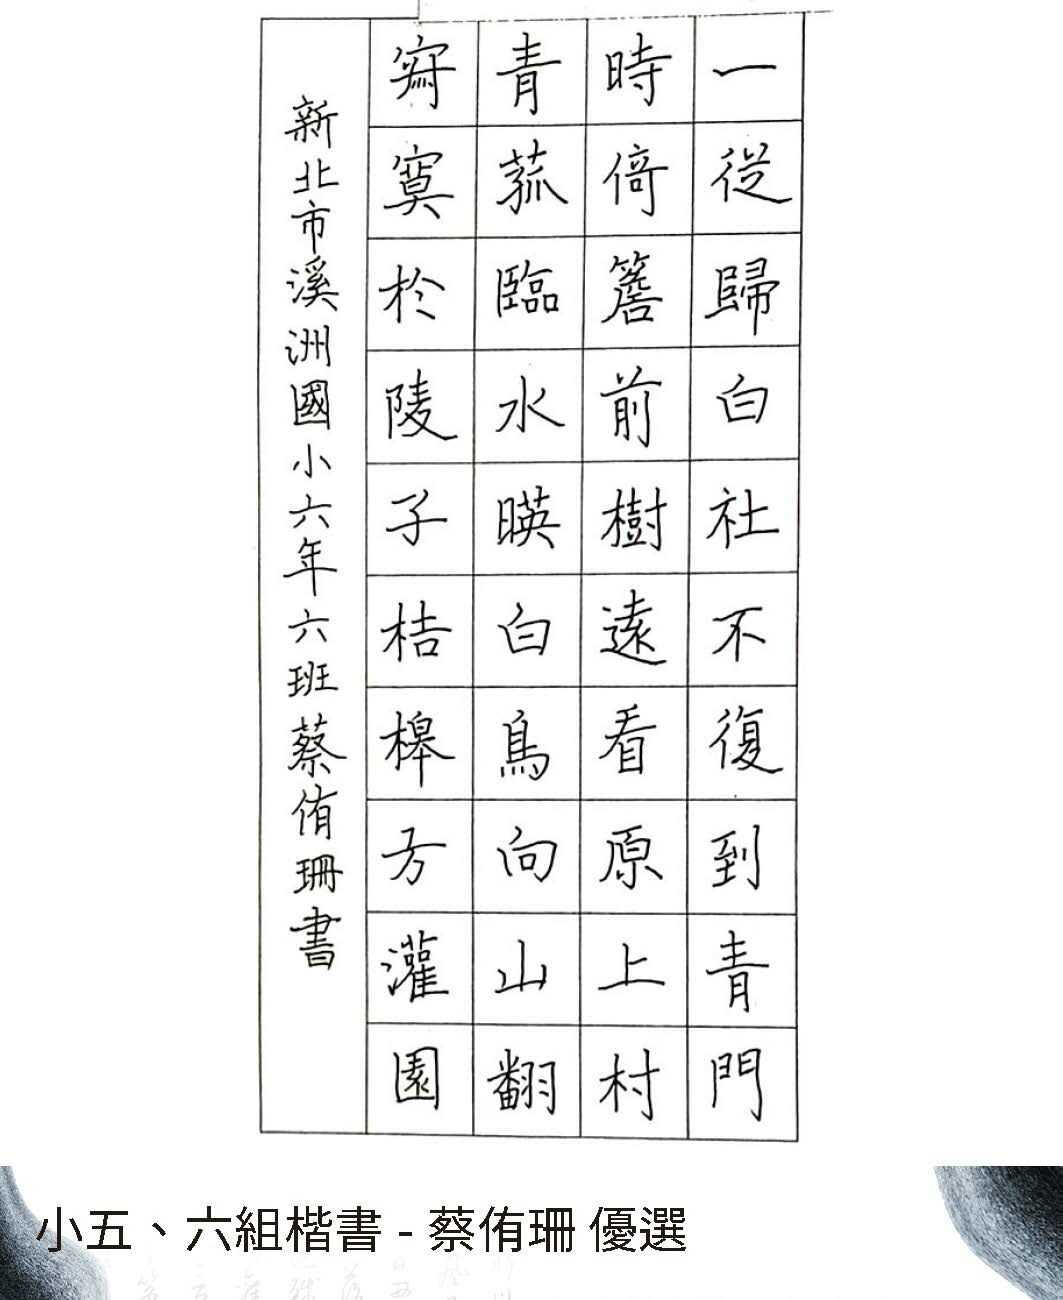 一從歸白社不復到青門
時倚簷前樹遠看原上村
青菰臨水暎白鳥向山翻
寂寞於陵子桔槔方灌園
新北市溪洲國小六年六班蔡侑珊書
小五、六組楷書 - 蔡侑珊 優選